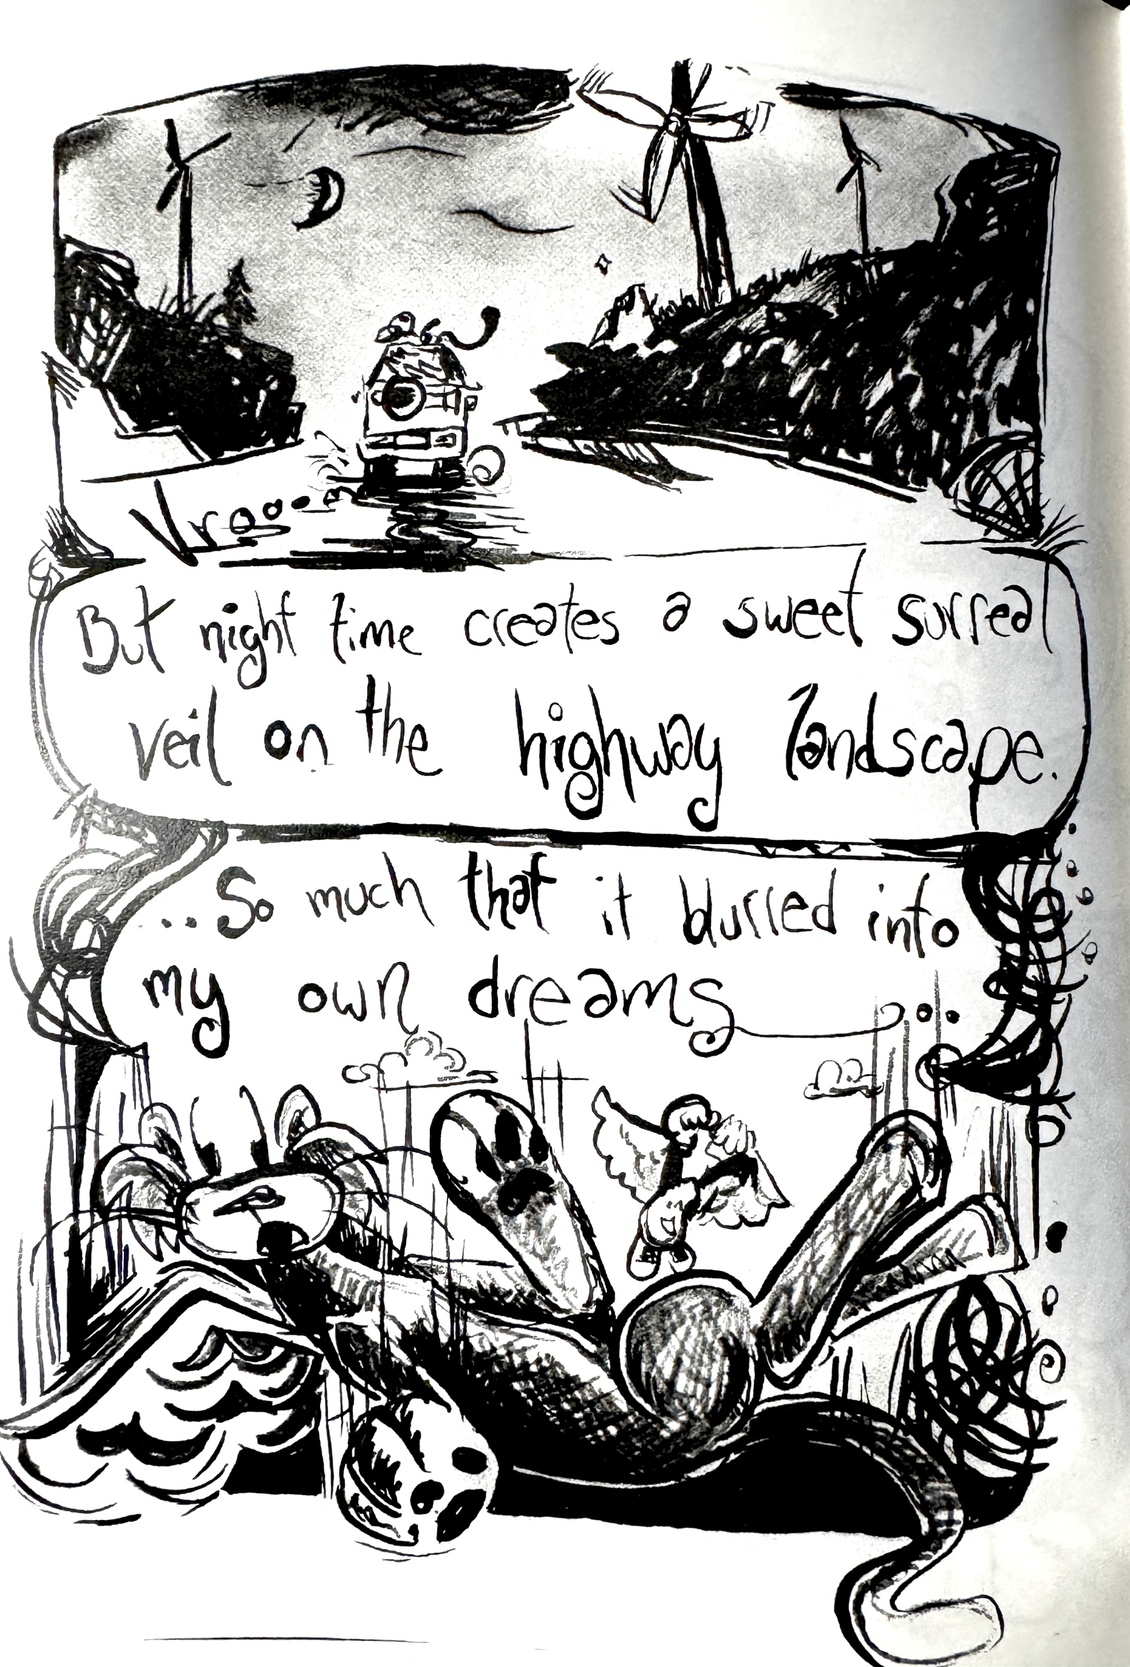 Vroo...
But night time creates a sweet surreal
veil on the highway landscape.
..So much that it blurred into
my own dreams...